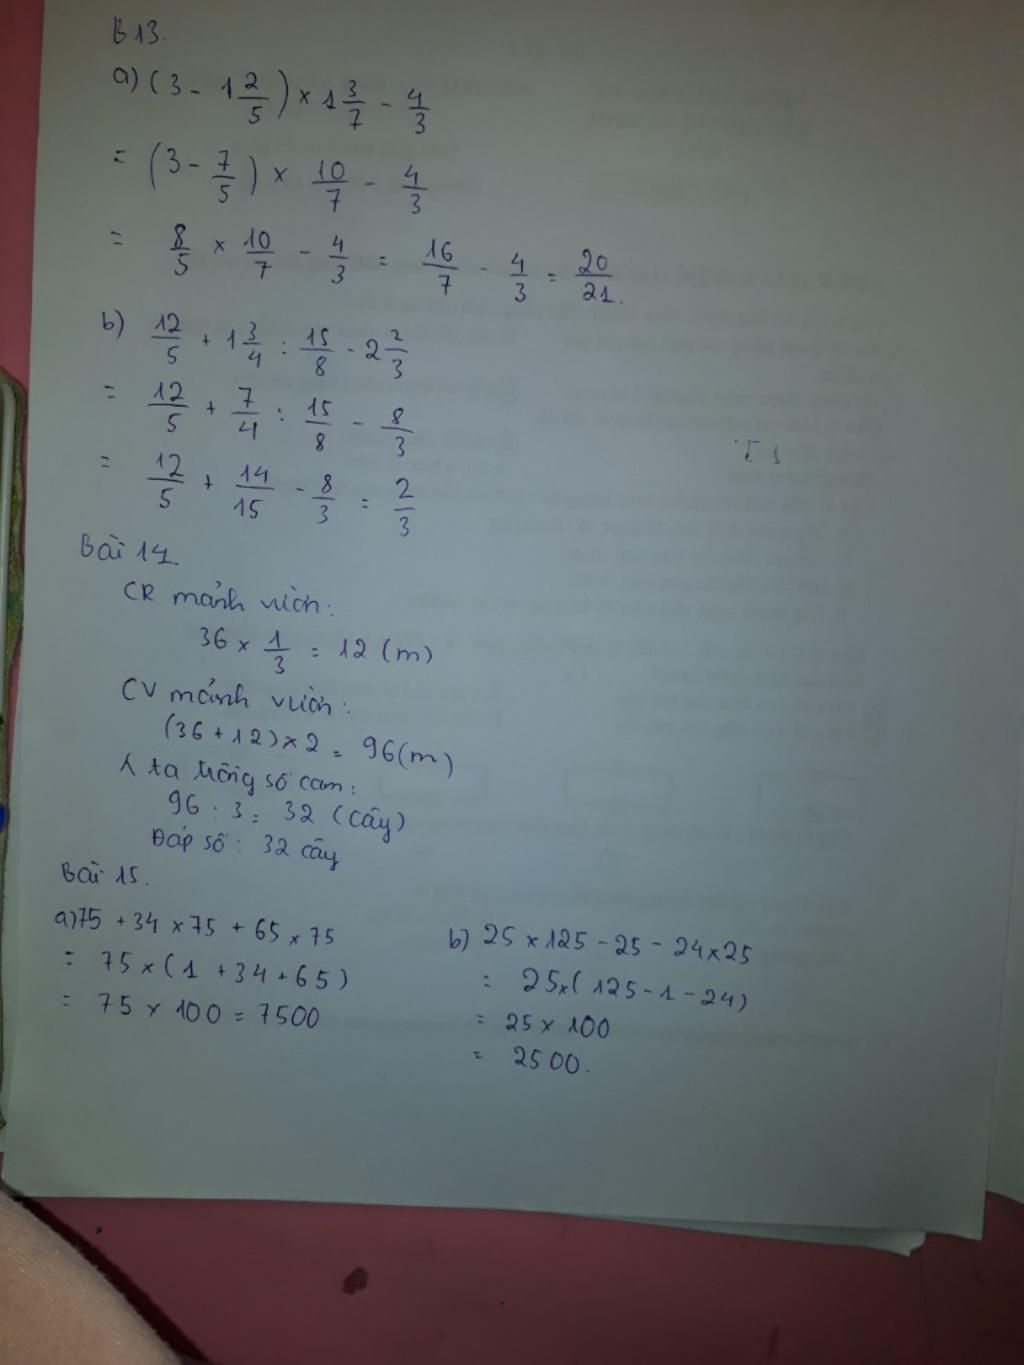 B13.
a) (3 - 1 2/5) × 1 3/7 - 4/3
= (3 - 7/5) × 10/7 - 4/3
= 8/5 × 10/7 - 4/3 = 16/7 - 4/3 = 20/21.
b) 12/5 + 1 3/4 : 15/8 - 2 2/3
= 12/5 + 7/4 : 15/8 - 8/3
= 12/5 + 14/15 - 8/3 = 2/3
Bài 14.
CR mảnh vườn:
36 × 1/3 = 12 (m)
CV mảnh vườn:
(36 + 12) × 2 = 96 (m)
ta trồng số cam:
96 : 3 = 32 (cây)
Đáp số: 32 cây
Bài 15.
a) 75 + 34 × 75 + 65 × 75
= 75 × (1 + 34 + 65)
= 75 × 100 = 7500
b) 25 × 125 - 25 - 24 × 25
= 25 × (125 - 1 - 24)
= 25 × 100
= 2500.